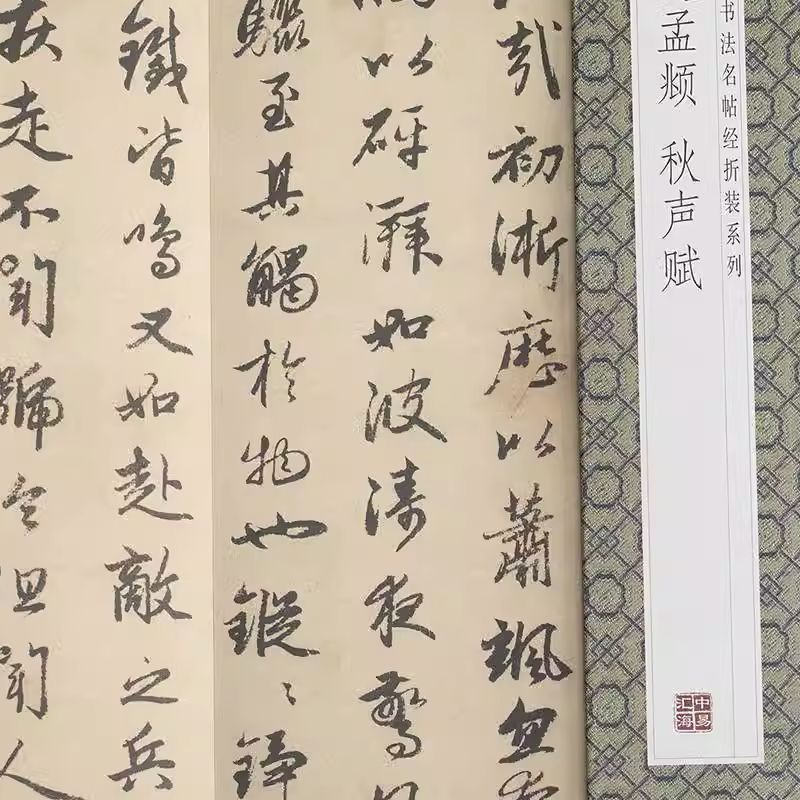 书法名帖经折装系列
孟𫖯 秋声赋
哉初淅歷以蕭颯忽
以砰湃如波濤夜驚
驟至其觸於物也鏦〻錚
鐵皆鳴又如赴敵之兵
疾走不聞號令但聞人
中易汇海